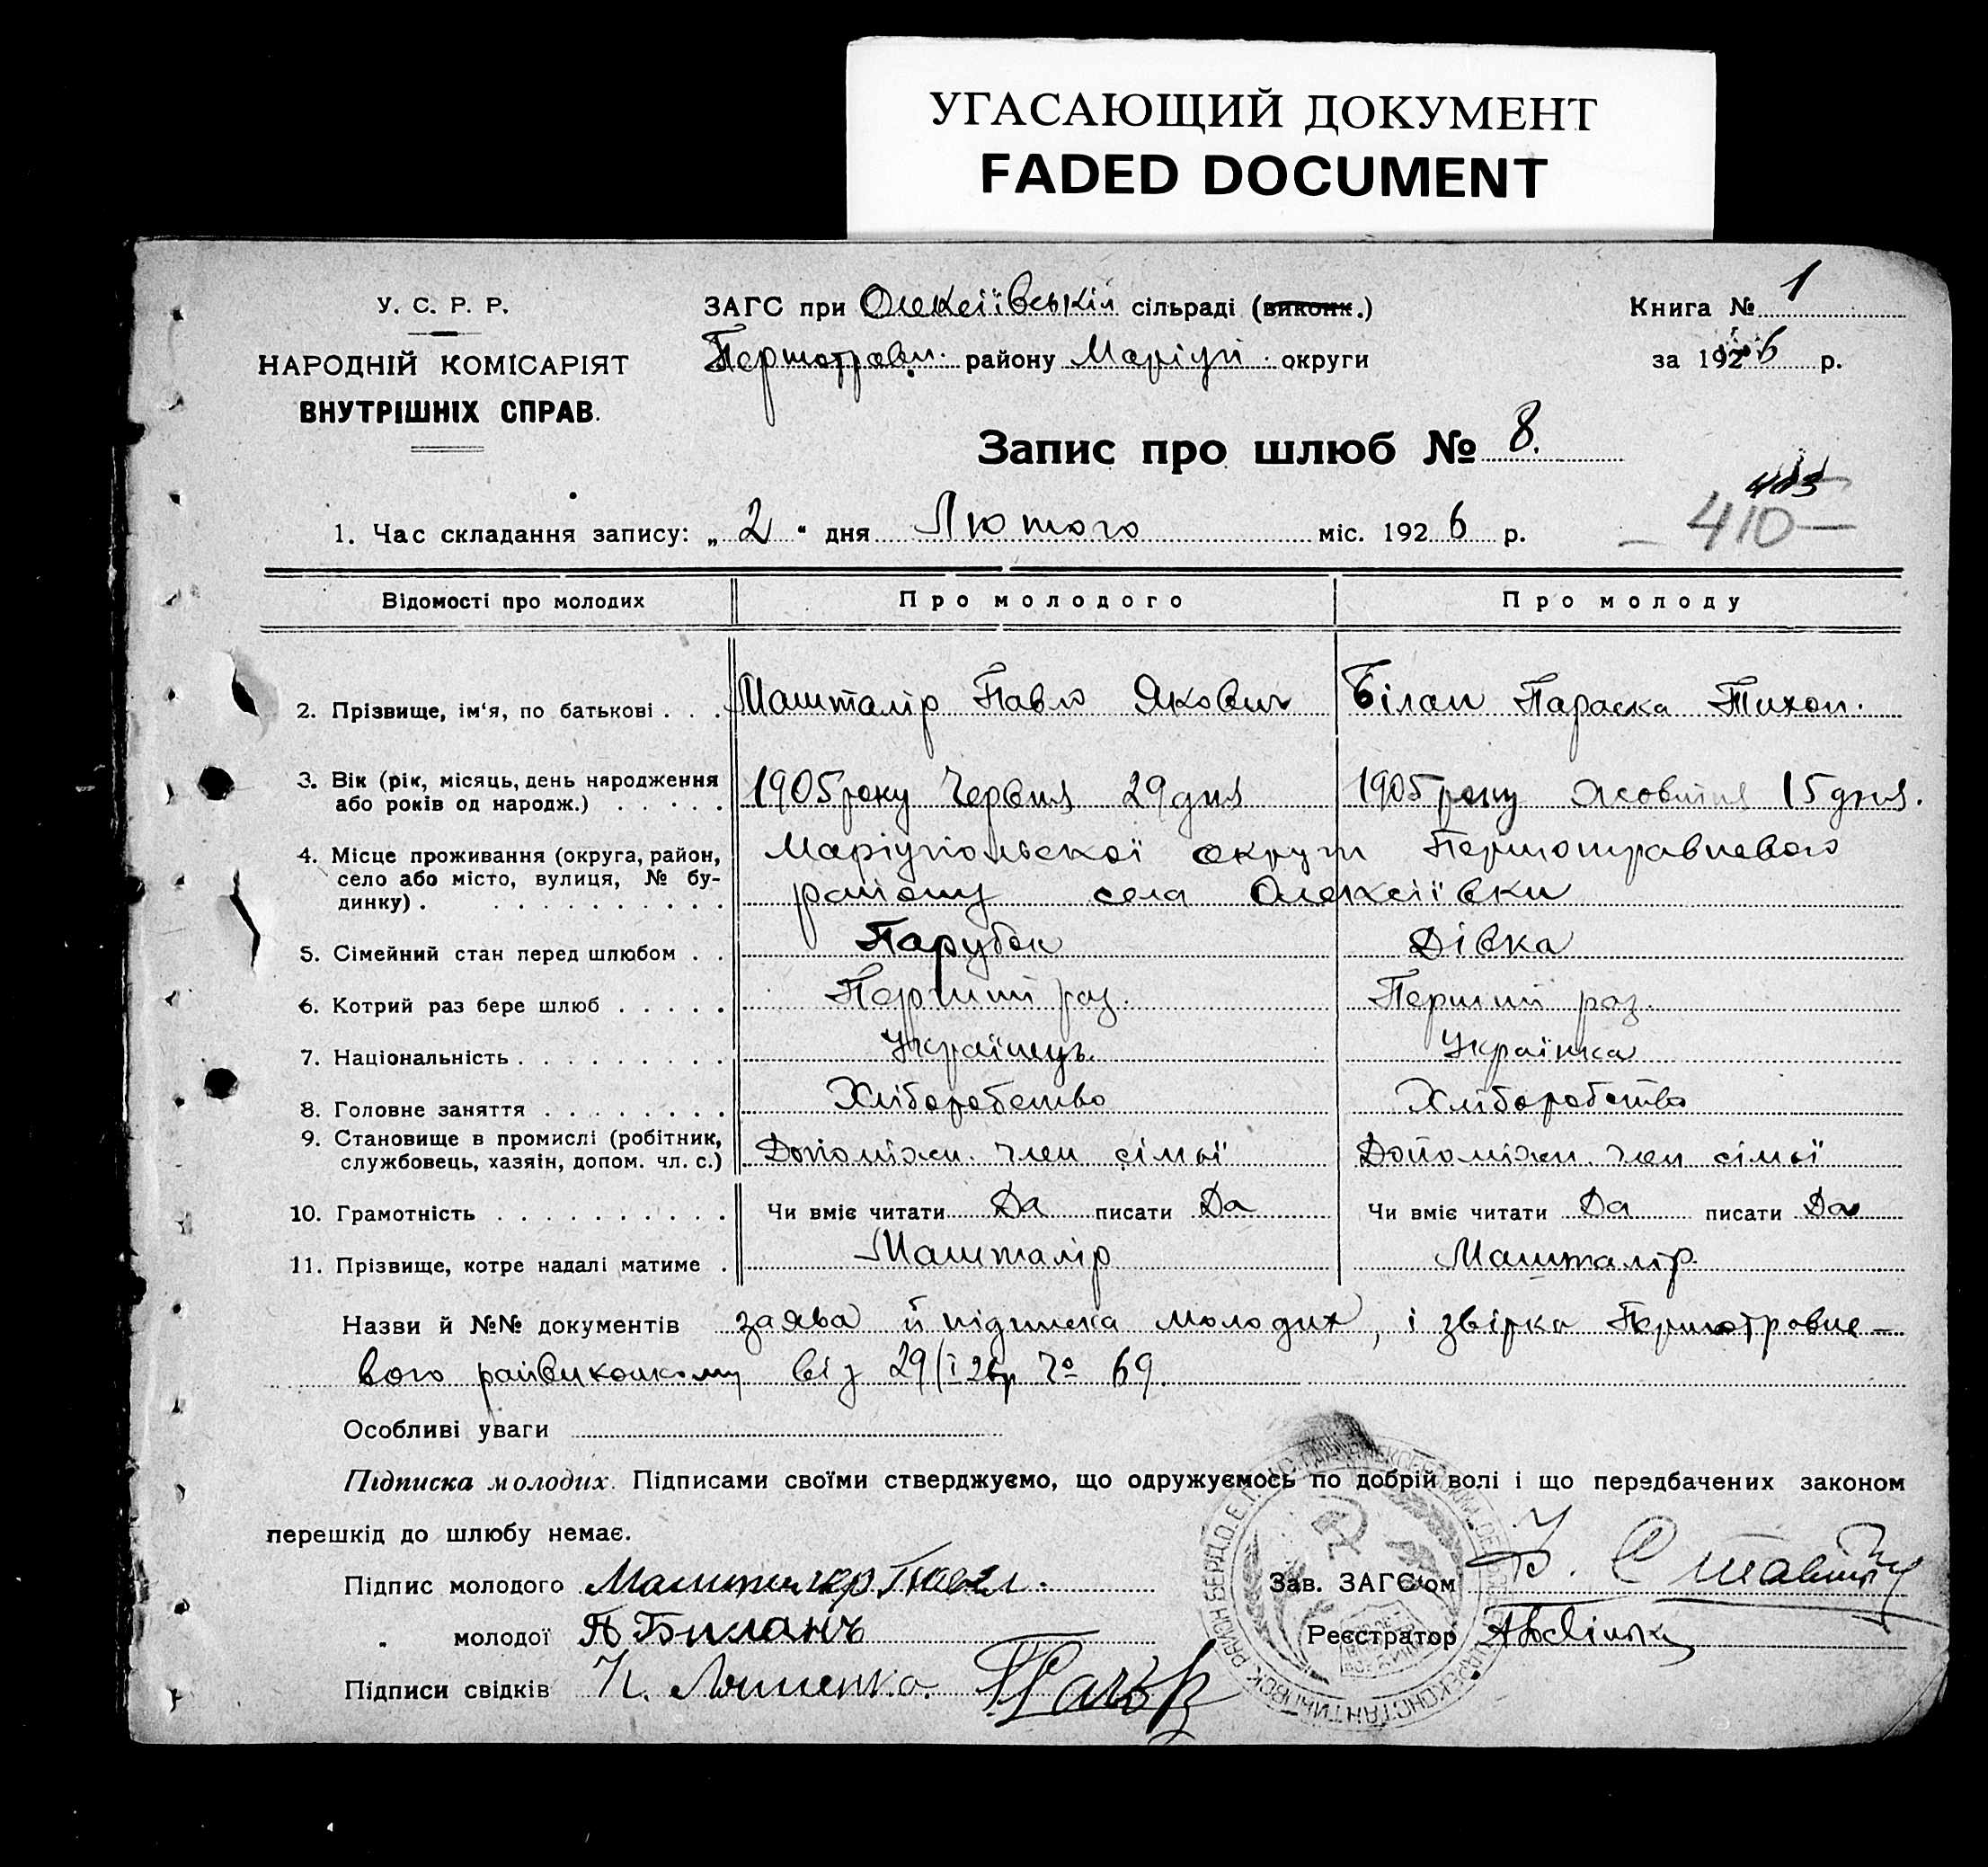 УГАСАЮЩИЙ ДОКУМЕНТ
FADED DOCUMENT
У. С. Р. Р.
НАРОДНІЙ КОМІСАРІЯТ
ВНУТРІШНІХ СПРАВ.
ЗАГС при Олексіївській сільраді (виконк.)
Першотравн. району Маріуп. округи
Книга № 1
за 1926 р.
Запис про шлюб № 8.
403
— 410 —
1. Час складання запису: „ 2 “ дня Лютого міс. 1926 р.
Відомості про молодих Про молодого Про молоду
2. Прізвище, ім‘я, по батькові . . . Машталір Павло Якович Білан Параска Тихон.
3. Вік (рік, місяць, день народження
або років од народж.) . . . . . 1905 року Червня 29 дня 1905 року Жовтня 15 дня.
4. Місце проживання (округа, район,
село або місто, вулиця, № бу-
динку) . . . . . . . . . . .
Маріупольської округи Першотравневого
району села Олексіївки
5. Сімейний стан перед шлюбом . . Парубок Дівка
6. Котрий раз бере шлюб . . . . . Перший раз. Перший раз.
7. Національність . . . . . . . . . Українець. Українка
8. Головне заняття . . . . . . . . Хліборобство Хліборобство
9. Становище в промислі (робітник,
службовець, хазяїн, допом. чл. с.) Допоміжн. член сімьї Допоміжн. член сімьї
10. Грамотність . . . . . . . . . . Чи вміє читати Да писати Да Чи вміє читати Да писати Да
11. Прізвище, котре надалі матиме . Машталір Машталір.
Назви й №№ документів заява й підписка молодих, і звірка Першотровне-
вого райвиконкому від 29/I 26р № 69.
Особливі уваги
Підписка молодих. Підписами своїми стверджуємо, що одружуємось по добрій волі і що передбачених законом
перешкід до шлюбу немає.
Підпис молодого Машталир Павел.
Зав. ЗАГС‘ом
„ молодої П Биланъ
Реєстратор
Підписи свідків